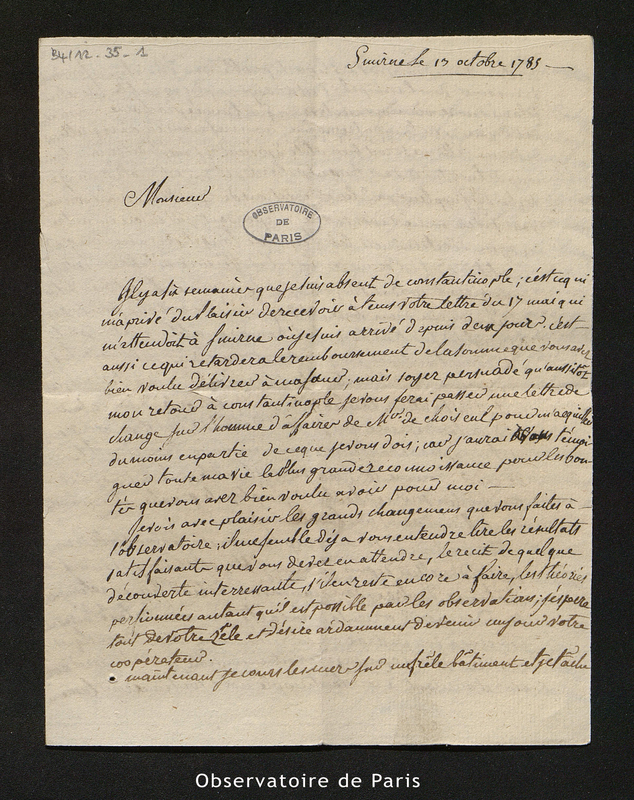 B4/12 - 35 - 1
Smirne le 13 octobre 1785
Monsieur
OBSERVATOIRE
DE
PARIS
Il y a six semaines que je suis absent de constantinople ; c'est ce qui
m'a privé du plaisir de recevoir à tems votre lettre du 17 mai qui
m'attendoit à Smirne où je suis arrivé depuis deux jours. c'est
aussi ce qui retardera le remboursement de la somme que vous avez
bien voulu délivrer à ma sœur, mais soyez persuadé qu'aussitôt
mon retour à constantinople je vous ferai passer une lettre de
change sur l'homme d'affaires de Mr. de choiseul pour m'acquitter
du moins en partie de ce que je vous dois ; car j'aurai à vous témoi
gner toute ma vie la plus grande reconnoissance pour les bon
tés que vous avez bien voulu avoir pour moi —
Je vois avec plaisir les grands changemens que vous faites à
l'observatoire ; il me semble déja vous entendre lire les résultats
satisfaisants que vous devez en attendre, le recit de quelque
découverte interressante, s'il en reste encore à faire, les théories
perfionnées autant qu'il est possible par les observations ; j'espère
tout de votre zêle et désire ardamment devenir un jour votre
coopérateur.
maintenant je cours les mers sur un frêle bâtiment et je tâche
Observatoire de Paris